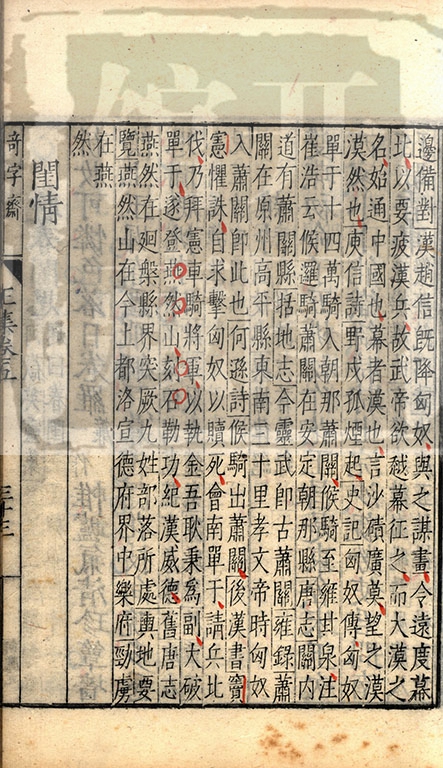 邊備對漢趙信旣降匈奴與之謀畫令遠度幕
北以要疲漢兵故武帝欲越幕征之而大漠之
名始通中國也幕者漠也言沙磧廣莫望之漠
漠然也庾信詩野戍孤煙起史記匈奴傳匈奴
單于十四萬騎入朝那蕭關候騎至雍甘泉注
崔浩云候邏騎蕭關在安定朝那縣唐志關内
道有蕭關縣括地志今靈武郎古蕭關雍錄蕭
關在原州高平縣東南三十里孝文帝時匈奴
入蕭關卽此也何遜詩候騎出蕭關後漢書竇
憲懼誅自求擊匈奴以贖死會南單于請兵北
伐乃拜憲車騎將軍以執金吾耿秉爲副大破
單于遂登燕然山刻石勒功紀漢威德舊唐志
燕然在廻槃縣界突厥九姓部落所處輿地要
覽燕然山在今上都洛宣德府界中樂府勁虜
在燕
然
閨情
奇字齋
三十三